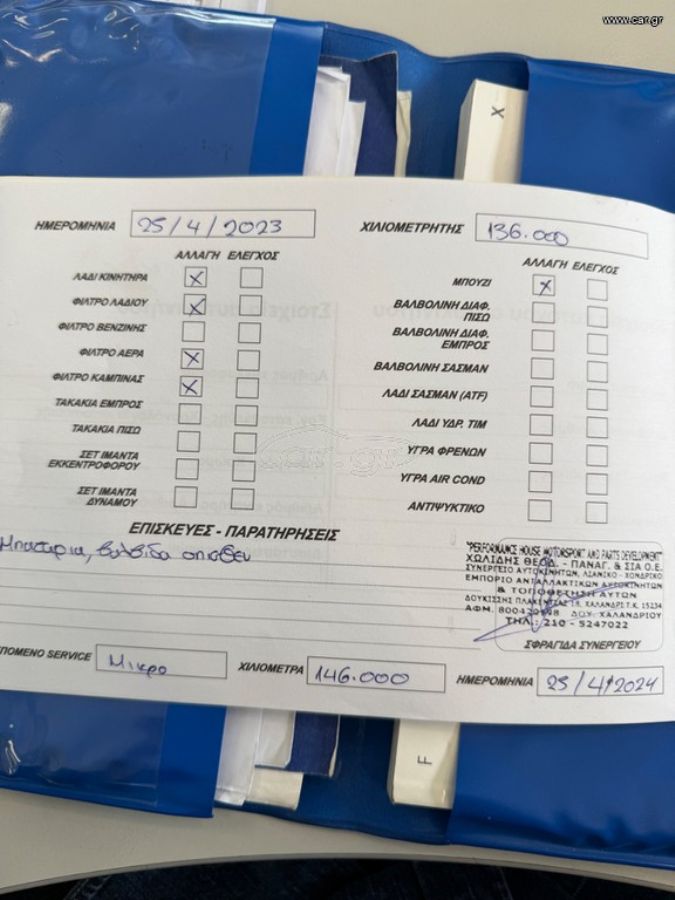 www.car.gr
X
ΗΜΕΡΟΜΗΝΙΑ 25/4/2023
ΧΙΛΙΟΜΕΤΡΗΤΗΣ 136.000
ΑΛΛΑΓΗ ΕΛΕΓΧΟΣ
ΛΑΔΙ ΚΙΝΗΤΗΡΑ X
ΦΙΛΤΡΟ ΛΑΔΙΟΥ X
ΦΙΛΤΡΟ ΒΕΝΖΙΝΗΣ
ΦΙΛΤΡΟ ΑΕΡΑ X
ΦΙΛΤΡΟ ΚΑΜΠΙΝΑΣ X
ΤΑΚΑΚΙΑ ΕΜΠΡΟΣ
ΤΑΚΑΚΙΑ ΠΙΣΩ
ΣΕΤ ΙΜΑΝΤΑ
ΕΚΚΕΝΤΡΟΦΟΡΟΥ
ΣΕΤ ΙΜΑΝΤΑ
ΔΥΝΑΜΟΥ
ΑΛΛΑΓΗ ΕΛΕΓΧΟΣ
ΜΠΟΥΖΙ X
ΒΑΛΒΟΛΙΝΗ ΔΙΑΦ.
ΠΙΣΩ
ΒΑΛΒΟΛΙΝΗ ΔΙΑΦ.
ΕΜΠΡΟΣ
ΒΑΛΒΟΛΙΝΗ ΣΑΣΜΑΝ
ΛΑΔΙ ΣΑΣΜΑΝ (ATF)
ΛΑΔΙ ΥΔΡ. ΤΙΜ
ΥΓΡΑ ΦΡΕΝΩΝ
ΥΓΡΑ AIR COND
ΑΝΤΙΨΥΚΤΙΚΟ
ΕΠΙΣΚΕΥΕΣ - ΠΑΡΑΤΗΡΗΣΕΙΣ
Μπαταρια, βαλβιδα οπισθεν
"PERFORMANCE HOUSE MOTORSPORT AND PARTS DEVELOPMENT"
ΧΩΛΙΔΗΣ ΘΕΟΔ. - ΠΑΝΑΓ. & ΣΙΑ Ο.Ε.
ΣΥΝΕΡΓΕΙΟ ΑΥΤΟΚΙΝΗΤΩΝ, ΛΙΑΝΙΚΟ - ΧΟΝΔΡΙΚΟ
ΕΜΠΟΡΙΟ ΑΝΤΑΛΛΑΚΤΙΚΩΝ ΑΥΤΟΚΙΝΗΤΩΝ
& ΤΟΠΟΘΕΤΗΣΗ ΑΥΤΩΝ
ΔΟΥΚΙΣΣΗΣ ΠΛΑΚΕΝΤΙΑΣ ΧΑΛΑΝΔΡΙ Τ.Κ. 15234
ΑΦΜ. ΔΟΥ. ΧΑΛΑΝΔΡΙΟΥ
ΤΗΛ.: 210 - 5247022
ΣΦΡΑΓΙΔΑ ΣΥΝΕΡΓΕΙΟΥ
ΠΟΜΕΝΟ SERVICE Μικρο
ΧΙΛΙΟΜΕΤΡΑ 146.000
ΗΜΕΡΟΜΗΝΙΑ 25/4/2024
F